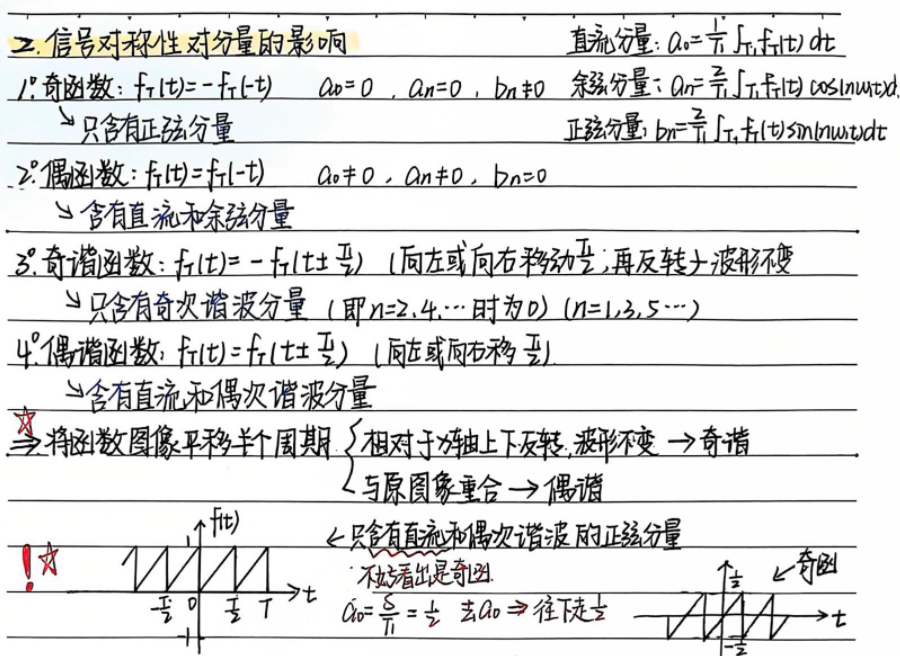 2. 信号对称性对分量的影响
直流分量: a₀=1/T₁ ∫T₁ f_T(t) dt
1°. 奇函数: f_T(t)=-f_T(-t)   a₀=0 , aₙ=0 , bₙ≠0
余弦分量: aₙ=2/T₁ ∫T₁ f_T(t) cos(nω₁t)d
↘ 只含有正弦分量
正弦分量: bₙ=2/T₁ ∫T₁ f_T(t)sin(nω₁t)dt
2°. 偶函数: f_T(t)=f_T(-t)   a₀≠0 , aₙ≠0 , bₙ=0
↘ 含有直流和余弦分量
3°. 奇谐函数: f_T(t)=-f_T(t±T₁/2) (向左或向右移动T₁/2,再反转) 波形不变
↘ 只含有奇次谐波分量 (即n=2,4,…时为0) (n=1,3,5…)
4°. 偶谐函数: f_T(t)=f_T(t±T₁/2) (向左或向右移T₁/2)
↘ 含有直流和偶次谐波分量
☆ ⇒ 将函数图像平移半个周期 { 相对于x轴上下反转,波形不变 → 奇谐
与原图象重合 → 偶谐
f(t)
1
-T/2 0 T/2 T t
-1
! ☆
← 只含有直流和偶次谐波的正弦分量
不好看出是奇函
a₀=S/T₁=1/2 去a₀ ⇒ 往下走1/2
↙ 奇函
1/2
t
-1/2